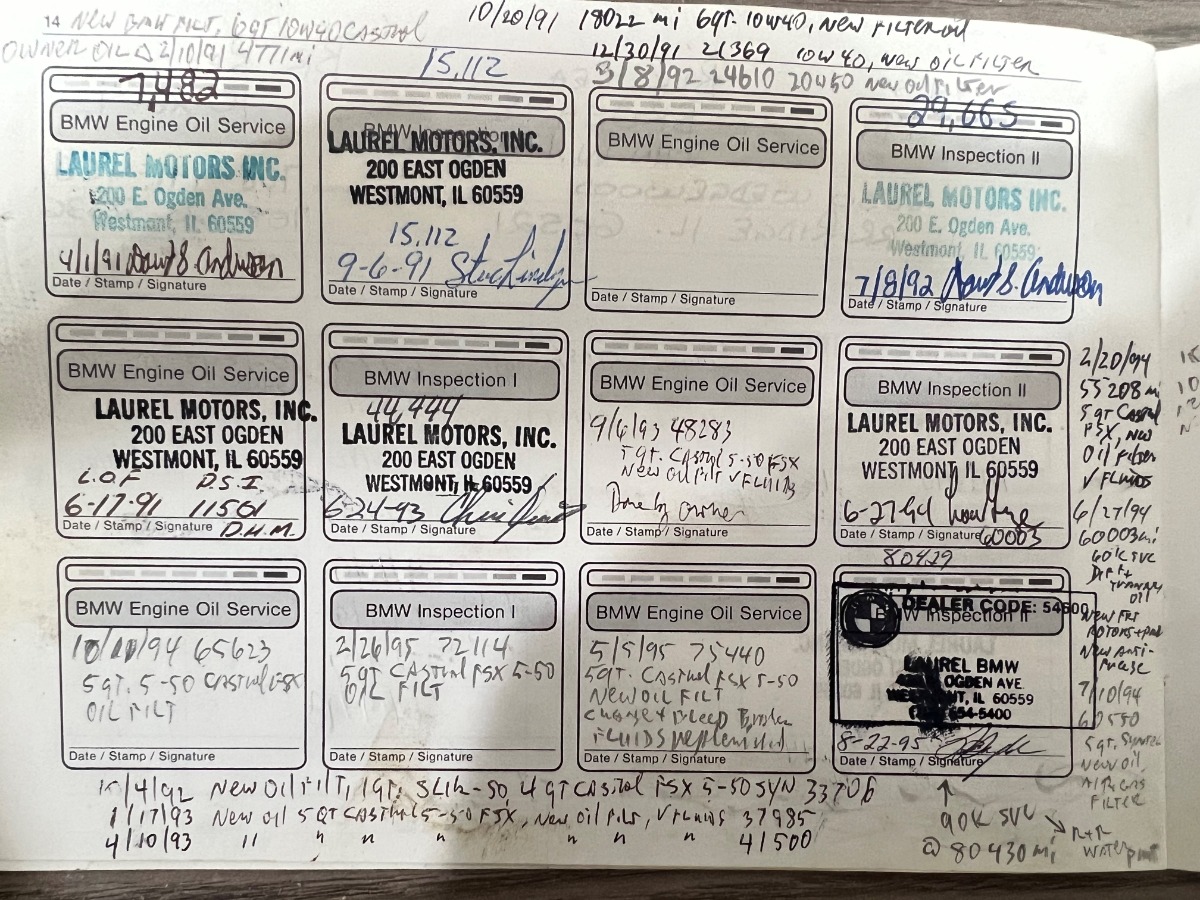 14 NEW BMW FILT, 6QT 10W40 CASTROL
OWNER OIL Δ 2/10/91 4771mi
10/20/91 18022 mi 6QT. 10W40, NEW FILTER oil
12/30/91 21369 10W40, NEW OIL FILTER
3/8/92 24610 20W50 New oil Filter
7,482
BMW Engine Oil Service
LAUREL MOTORS INC.
200 E. Ogden Ave.
Westmont, IL 60559
4/1/91 David S. Anderson
Date / Stamp / Signature
15,112
BMW Inspection
LAUREL MOTORS, INC.
200 EAST OGDEN
WESTMONT, IL 60559
15,112
9-6-91
Date / Stamp / Signature
BMW Engine Oil Service
Date / Stamp / Signature
29,665
BMW Inspection II
LAUREL MOTORS INC.
200 E. Ogden Ave.
Westmont, IL 60559
7/8/92 David S. Anderson
Date / Stamp / Signature
BMW Engine Oil Service
LAUREL MOTORS, INC.
200 EAST OGDEN
WESTMONT, IL 60559
L.O.F P.S.I.
6-17-91 11561
Date / Stamp / Signature D.H.M.
BMW Inspection I
44,444
LAUREL MOTORS, INC.
200 EAST OGDEN
WESTMONT, IL 60559
6-24-93
Date / Stamp / Signature
BMW Engine Oil Service
9/6/93 48283
5 qt. CASTROL 5-50 FSX
New Oil Filt √ FLUIDS
Done by owner
Date / Stamp / Signature
BMW Inspection II
LAUREL MOTORS, INC.
200 EAST OGDEN
WESTMONT, IL 60559
6-27-94
Date / Stamp / Signature 60003
BMW Engine Oil Service
65623
5 QT. 5-50 CASTROL FSX
OIL FILT
Date / Stamp / Signature
BMW Inspection I
2/26/95 72114
5 QT CASTROL FSX 5-50
OIL FILT
Date / Stamp / Signature
BMW Engine Oil Service
5/5/95 75440
5QT. CASTROL FSX 5-50
NEW OIL FILT
change + Bleed Brakes
FLUIDS replenished
Date / Stamp / Signature
80429
BMW Inspection II
DEALER CODE: 54600
LAUREL BMW
OGDEN AVE.
WESTMONT, IL 60559
654-5400
8-22-95
Date / Stamp / Signature
2/20/94
55208 mi
5 qt Castrol
FSX, NEW
OIL Filter
√ FLUIDS
6/27/94
60003 mi
60K SVC
DIFF +
OIL
NEW FRT
ROTORS + pads
NEW ANTI-
FREEZE
7/10/94
60550
5 qt.
NEW OIL,
FILTER
10/4/92 NEW OIL FILT, 1QT. SLICK-50, 4 QT CASTROL FSX 5-50 SYN 33706
1/17/93 New oil 5 QT CASTROL 5-50 FSX, New oil Filt, √ FLUIDS 37985
4/10/93 " " " " " 41500
↑
90K SVC
@ 80430 mi
R+R
WATER pump